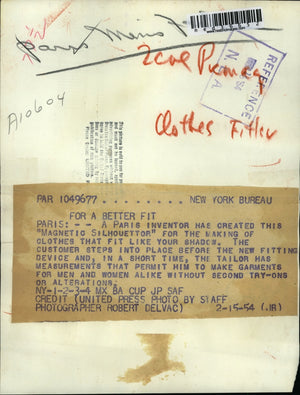 Paris
REFERENCE
54
N.E.A.
A10604
Clothes Fitter
PAR 1049677....... NEW YORK BUREAU
FOR A BETTER FIT
PARIS: -- A PARIS INVENTOR HAS CREATED THIS
"MAGNETIC SILHOUETTOR" FOR THE MAKING OF
CLOTHES THAT FIT LIKE YOUR SHADOW. THE
CUSTOMER STEPS INTO PLACE BEFORE THE NEW FITTING
DEVICE AND, IN A SHORT TIME, THE TAILOR HAS
MEASUREMENTS THAT PERMIT HIM TO MAKE GARMENTS
FOR MEN AND WOMEN ALIKE WITHOUT SECOND TRY-ONS
OR ALTERATIONS.
NY-1-2-3-4 MX BA CUP JP SAF
CREDIT (UNITED PRESS PHOTO BY STAFF
PHOTOGRAPHER ROBERT DELVAC) 2-15-54 (JR)